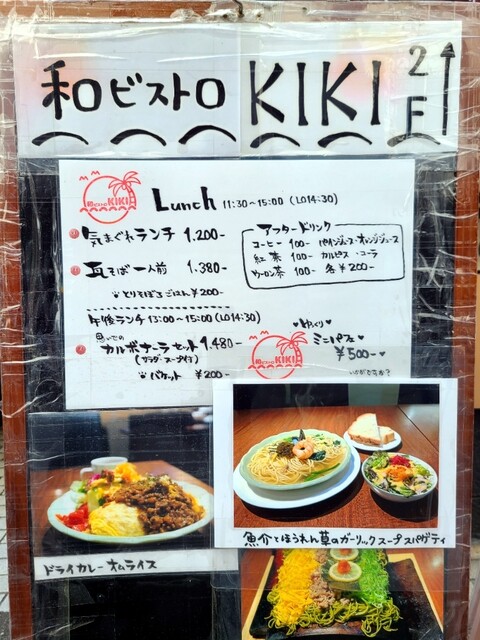 和ビストロ KIKI 2F
KIKI
Lunch 11:30~15:00 (LO14:30)
気まぐれランチ 1.200-
瓦そば一人前 1.380-
※とりそぼろごはん ¥200-
アフタードリンク
コーヒー 100- パインジュース・オレンジジュース
紅茶 100- カルピス・コーラ
ウーロン茶 100- 各¥200-
午後ランチ 13:00~15:00 (LO14:30)
思いでの
カルボナーラセット 1.480-
(サラダ・スープ付)
※バケット ¥200-
KIKI
ミニパフェ
¥500-
いかがですか?
魚介とほうれん草のガーリックスープスパゲティ
ドライカレーオムライス